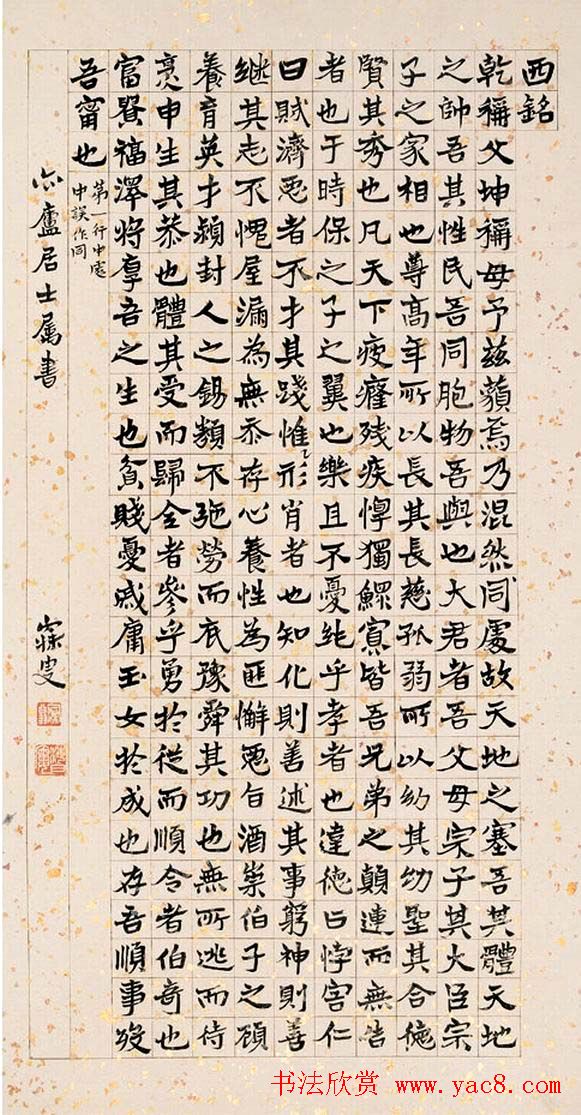 西銘
乾稱父坤稱母予茲藐焉乃混然同處故天地之塞吾其體天地
之帥吾其性民吾同胞物吾與也大君者吾父母宗子其大臣宗
子之家相也尊高年所以長其長慈孤弱所以幼其幼聖其合德
賢其秀也凡天下疲癃残疾惸獨鰥寡皆吾兄弟之顛連而無告
者也于時保之子之翼也樂且不憂純乎孝者也違德曰悖害仁
曰賊濟惡者不才其踐惟形肖者也知化則善述其事窮神則善
继其志不愧屋漏為無忝存心養性為匪懈惡旨酒崇伯子之顧
養育英才潁封人之錫類不弛勞而厎豫舜其功也無所逃而待
烹申生其恭也體其受而歸全者參乎勇於從而順令者伯奇也
富貴福澤將厚吾之生也貧賤憂戚庸玉女於成也存吾順事歿
吾甯也
第一行中處
中誤作同
廬居士属書 寐叟
书法欣赏 www.yac8.com